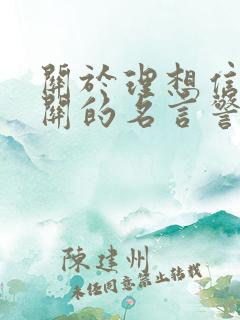 關於理想信
關的名言警
陳建州
未經同意禁止轉載